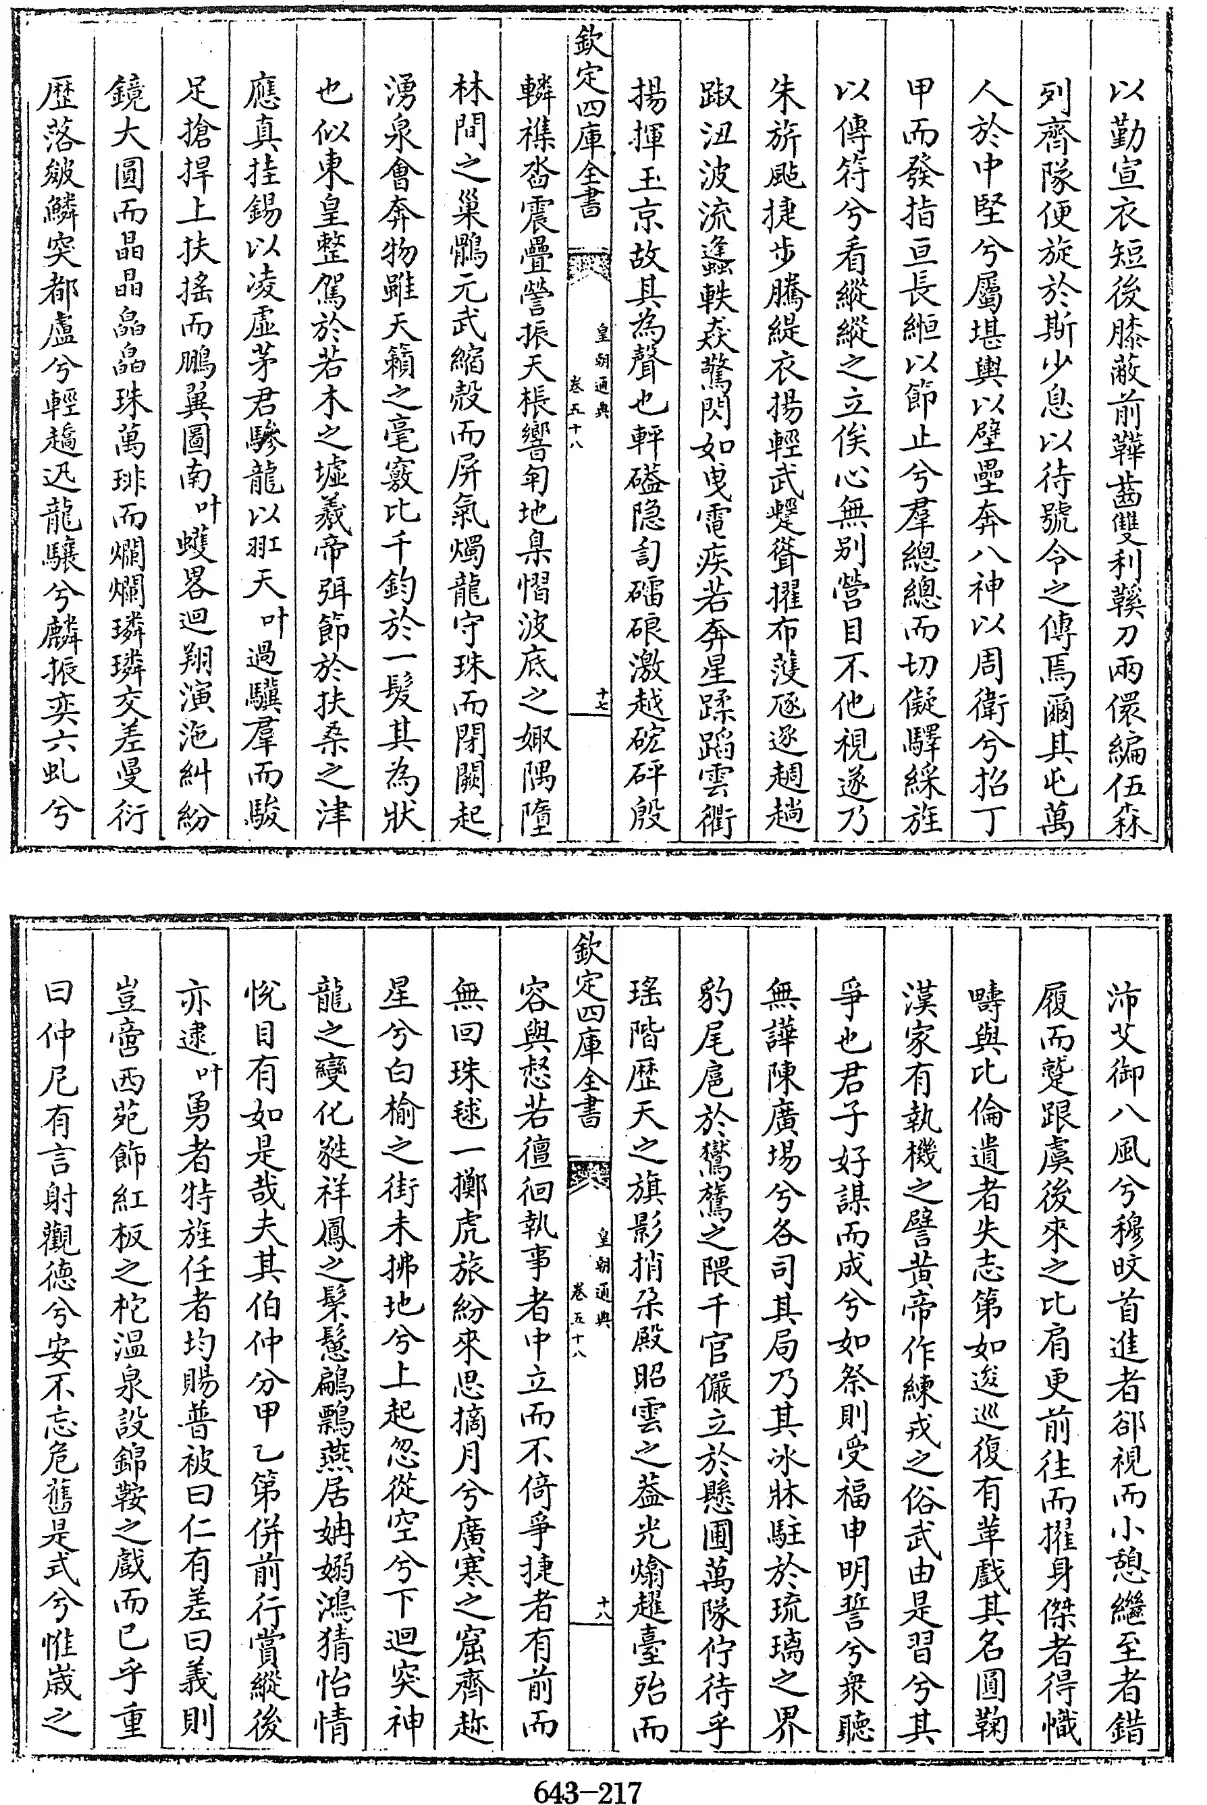 以勤宣衣短後膝蔽前鞾齒雙利鞵刀兩儇編伍森
列齊隊便旋於斯少息以待號令之傳焉爾其屯萬
人於中堅兮屬堪輿以壁壘奔八神以周衛兮招丁
甲而發指亘長絙以節止兮羣總總而切儗驛綵旌
以傳符兮看縱縱之立俟心無别營目不他視遂乃
朱旂颭捷步騰緹衣揚輕武蹵聳擢布濩豗逐趨趟
踧沑波流遙軼猋驚閃如曳電疾若奔星蹂蹈雲衢
揚揮玉京故其為聲也軯磕隐訇礌硠激越硡砰殷
轔襍沓震疊謍振天棖響訇地臬慴波底之娵隅墮
林間之巢鶻元武縮殻而屏氣燭龍守珠而閉闕起
湧泉會奔物雖天籟之毫竅比千鈞於一髮其為狀
也似東皇整駕於若木之墟羲帝弭節於扶桑之津
應真挂錫以凌虚茅君驂龍以翀天叶過驥羣而駿
足搶捍上扶搖而鵬翼圖南叶蠖畧迴翔演沲糾紛
鏡大圓而晶晶皛皛珠萬琲而爛爛璘璘交差曼衍
歴落皴鱗突都盧兮輕趫迅龍驤兮麟振奕六虬兮
欽定四庫全書
皇朝通典
卷五十八
十七
沛艾御八風兮穆旼首進者郤視而小憩繼至者錯
履而躄跟虞後來之比肩更前往而擢身傑者得幟
疇與比倫遺者失志第如逡巡復有革戲其名圓鞠
漢家有執機之譬黄帝作練戎之俗武由是習兮其
爭也君子好謀而成兮如祭則受福申明誓兮衆聽
無譁陳廣場兮各司其局乃其冰牀駐於琉璃之界
豹尾扈於鸞鷟之隈千官儼立於懸圃萬隊佇待乎
瑤階歴天之旗影捎朶殿昭雲之葢光爚趯臺殆而
容與憖若儃徊執事者中立而不倚爭捷者有前而
無回珠毬一擲虎旅紛來思摘月兮廣寒之窟齊趂
星兮白榆之街未拂地兮上起忽從空兮下迴突神
龍之變化㲯祥鳳之髤鬈翩飄燕居姌嫋鴻猜怡情
悅目有如是哉夫其伯仲分甲乙第併前行賞縱後
亦逮叶勇者特旌任者均賜普被曰仁有差曰義則
豈啻西苑飾紅板之柁温泉設錦鞍之戲而已乎重
曰仲尼有言射觀德兮安不忘危舊是式兮惟嵗之
欽定四庫全書
皇朝通典
卷五十八
十八
643-217